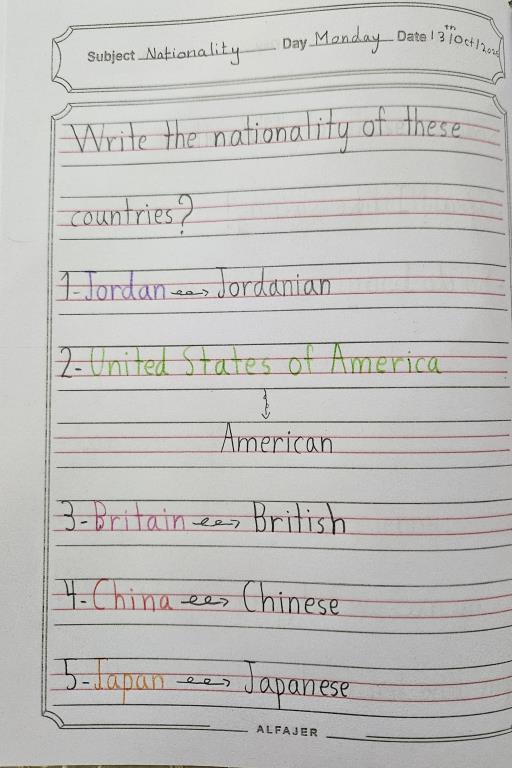 Subject Nationality Day Monday Date 13th/Oct/2025
Write the nationality of these
countries?
1-Jordan → Jordanian
2-United States of America
↓
American
3-Britain → British
4-China → Chinese
5-Japan → Japanese
ALFAJER